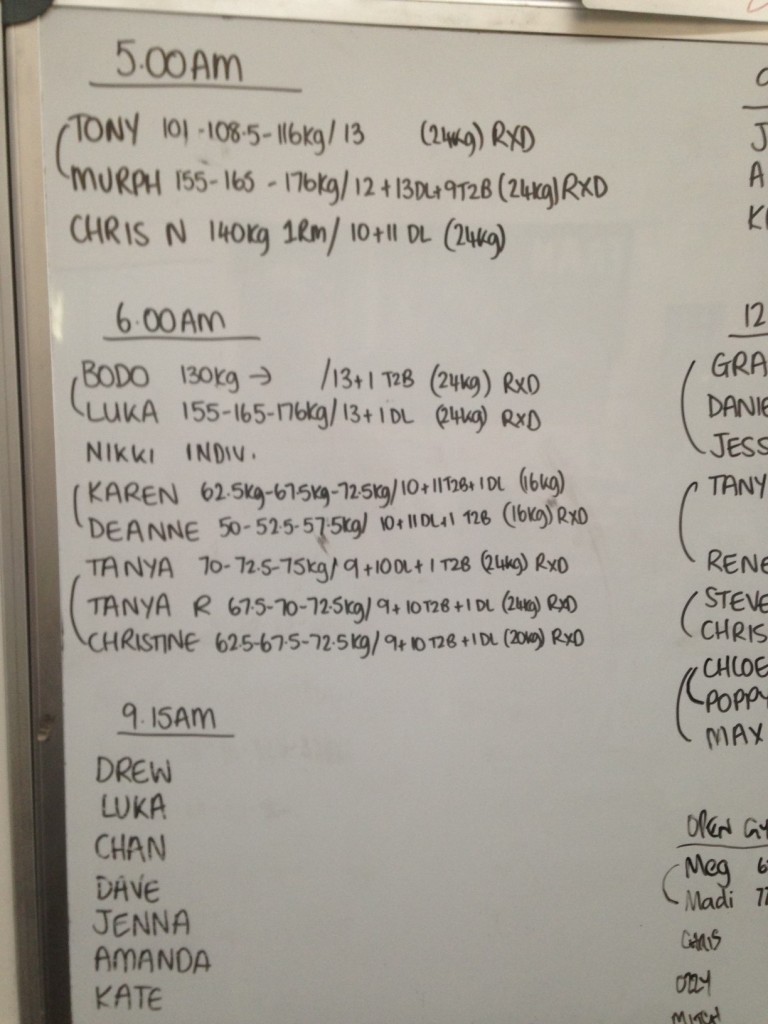 5.00AM
TONY 101-108.5-116kg/13 (24kg) RXD
MURPH 155-165-176kg/12+13DL+9T2B (24kg) RXD
CHRIS N 140kg 1Rm/10+11 DL (24kg)
6.00AM
BODO 130kg → /13+1 T2B (24kg) RXD
LUKA 155-165-176kg/13+1DL (24kg) RXD
NIKKI INDIV.
KAREN 62.5kg-67.5kg-72.5kg/10+11T2B+1DL (16kg)
DEANNE 50-52.5-57.5kg/ 10+11DL+1 T2B (16kg) RXD
TANYA 70-72.5-75kg/9+10DL+1T2B (24kg) RXD
TANYA R 67.5-70-72.5kg/9+10T2B+1DL (24kg) RXD
CHRISTINE 62.5-67.5-72.5kg/9+10T2B+1DL (20kg) RXD
9.15AM
DREW
LUKA
CHAN
DAVE
JENNA
AMANDA
KATE
J
A
12
GRA
DANIE
JESS
TANY
RENE
STEVE
CHRIS
CHLOE
POPPY
MAX
OPEN GY
Meg 6
Madi 77
CHRIS
OZZY